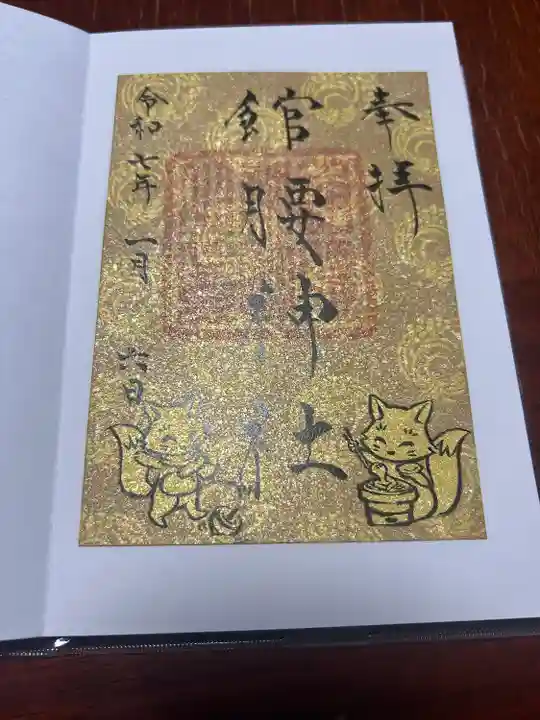 奉拝
館腰神社
令和七年 一月 六日